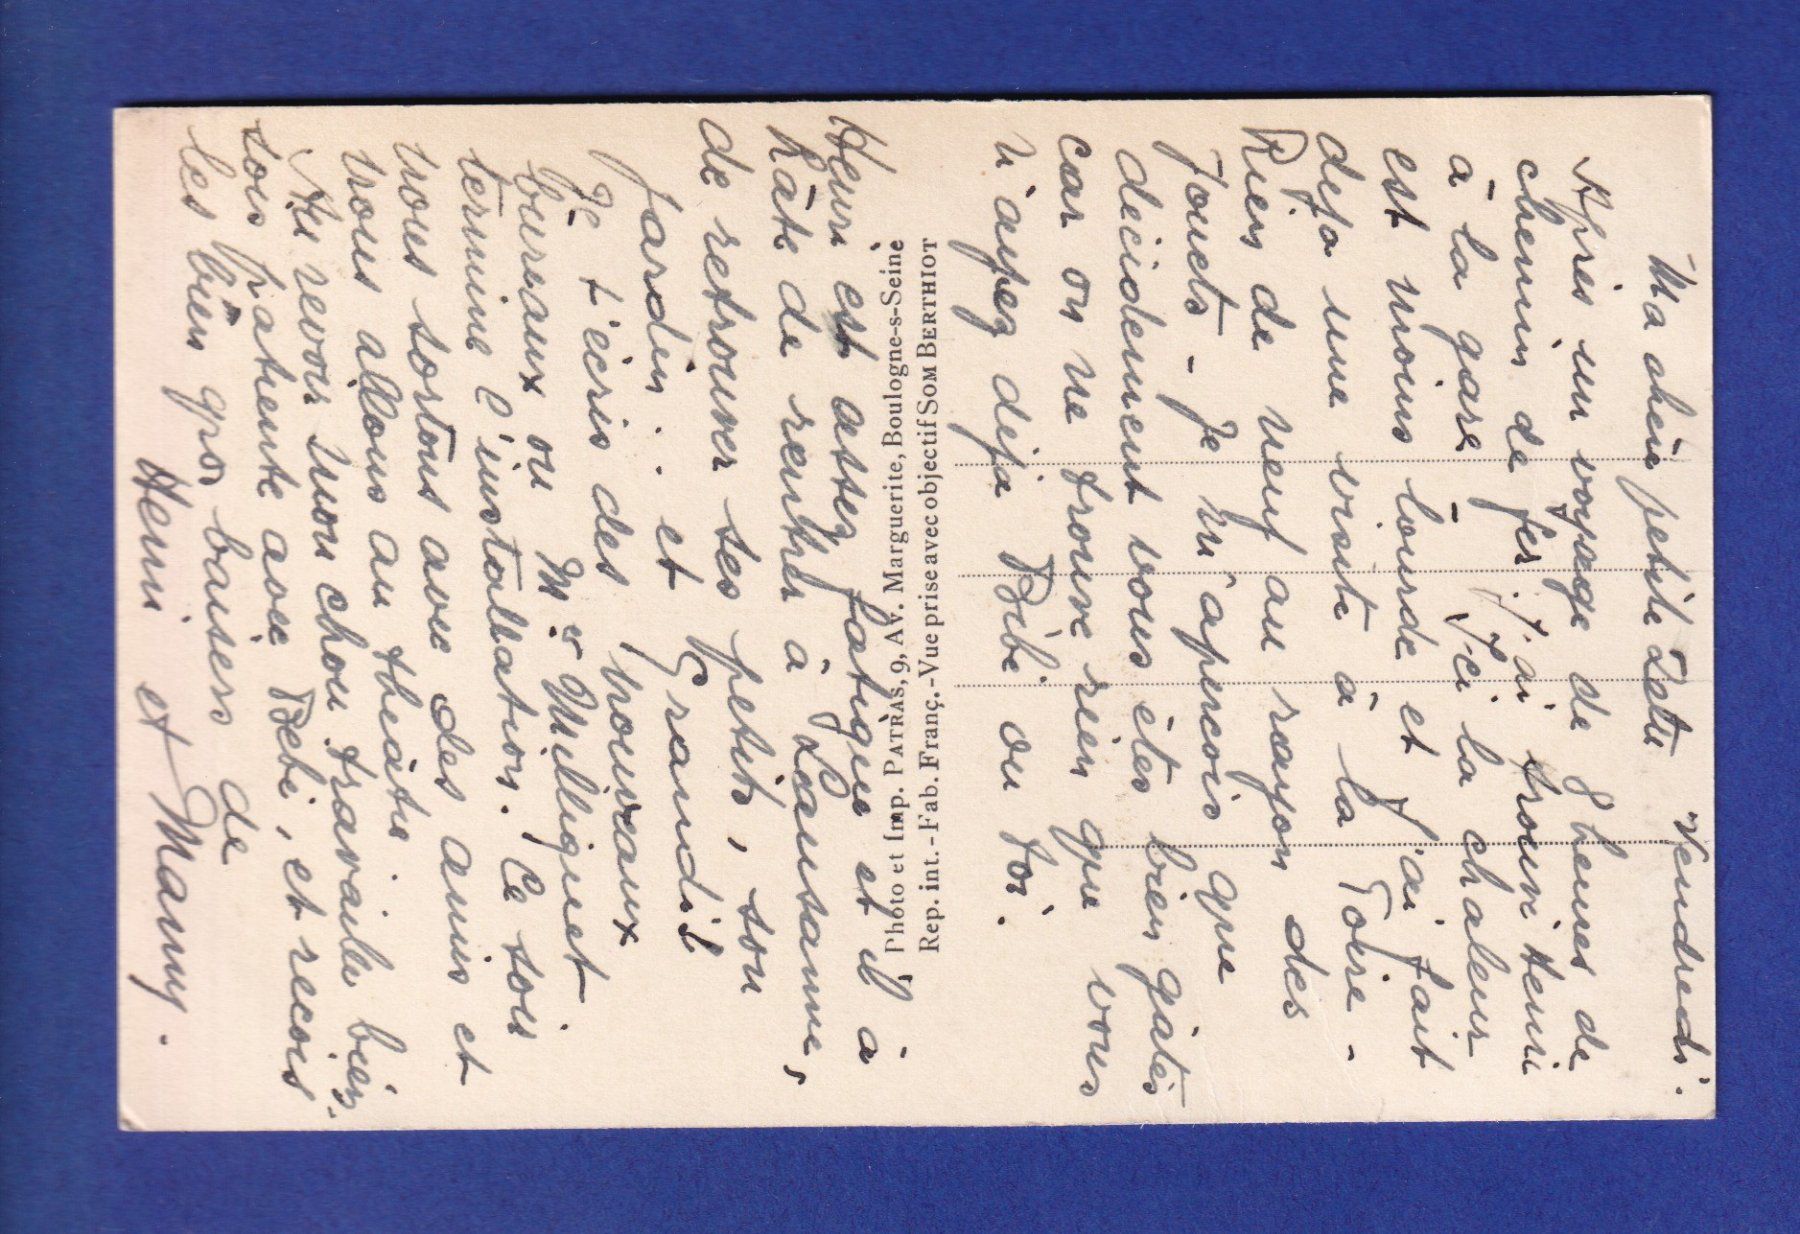 Vendredi.
Ma chère petite Zette
Après un voyage de 8 heures de
chemin de fer. J'ai trouvé Henri
à la gare. Ici la chaleur
est moins lourde et j'ai fait
déjà une visite à la Foire -
Rien de neuf au rayon des
jouets - Je m'aperçois que
décidement vous êtes bien gâtés
car on ne trouve rien que vous
n'ayez déjà Bébé ou toi.
Photo et Imp. PATRAS, 9, Av. Marguerite, Boulogne-s-Seine
Rep. int. - Fab. Franç. - Vue prise avec objectif SOM BERTHIOT
Henri est assez fatigué et il a
hâte de rentrer à Lausanne,
de retrouver ses petits, son
jardin.. et Grandil
Je t'écris des nouveaux
bureaux ou Mr Milliquet
termine l'installation. Ce soir
nous sortons avec des amis et
nous allons au théâtre.
Au revoir mon chou travaille bien,
sois patiente avec Bébé, et reçois
les bien gros baisers de
Henri et Mamy.